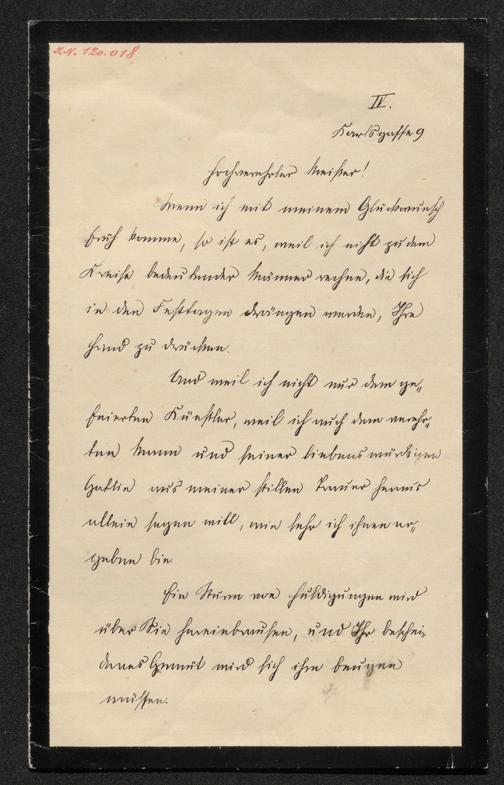 I.N. 120.018
IV.
Karlsgasse 9
Hochverehrter Meister!
Wenn ich mit meinem Glückwunsch
früh komme, so ist es, weil ich nicht zu dem
Kreise bedeutender Männer rechne, die sich
in den Festtagen drängen werden, Ihre
Hand zu drücken.
Und weil ich nicht nur dem ge-
feierten Künstler, weil ich auch dem verehr-
ten Mann und seiner liebenswürdigen
Gattin aus meiner stillen Trauer heraus
allein sagen will, wie sehr ich ihnen er-
geben bin
Ein Sturm von Huldigungen wird
über Sie hereinbrausen, und Ihr beschei-
denes Gemüt wird sich ihm beugen
müssen.